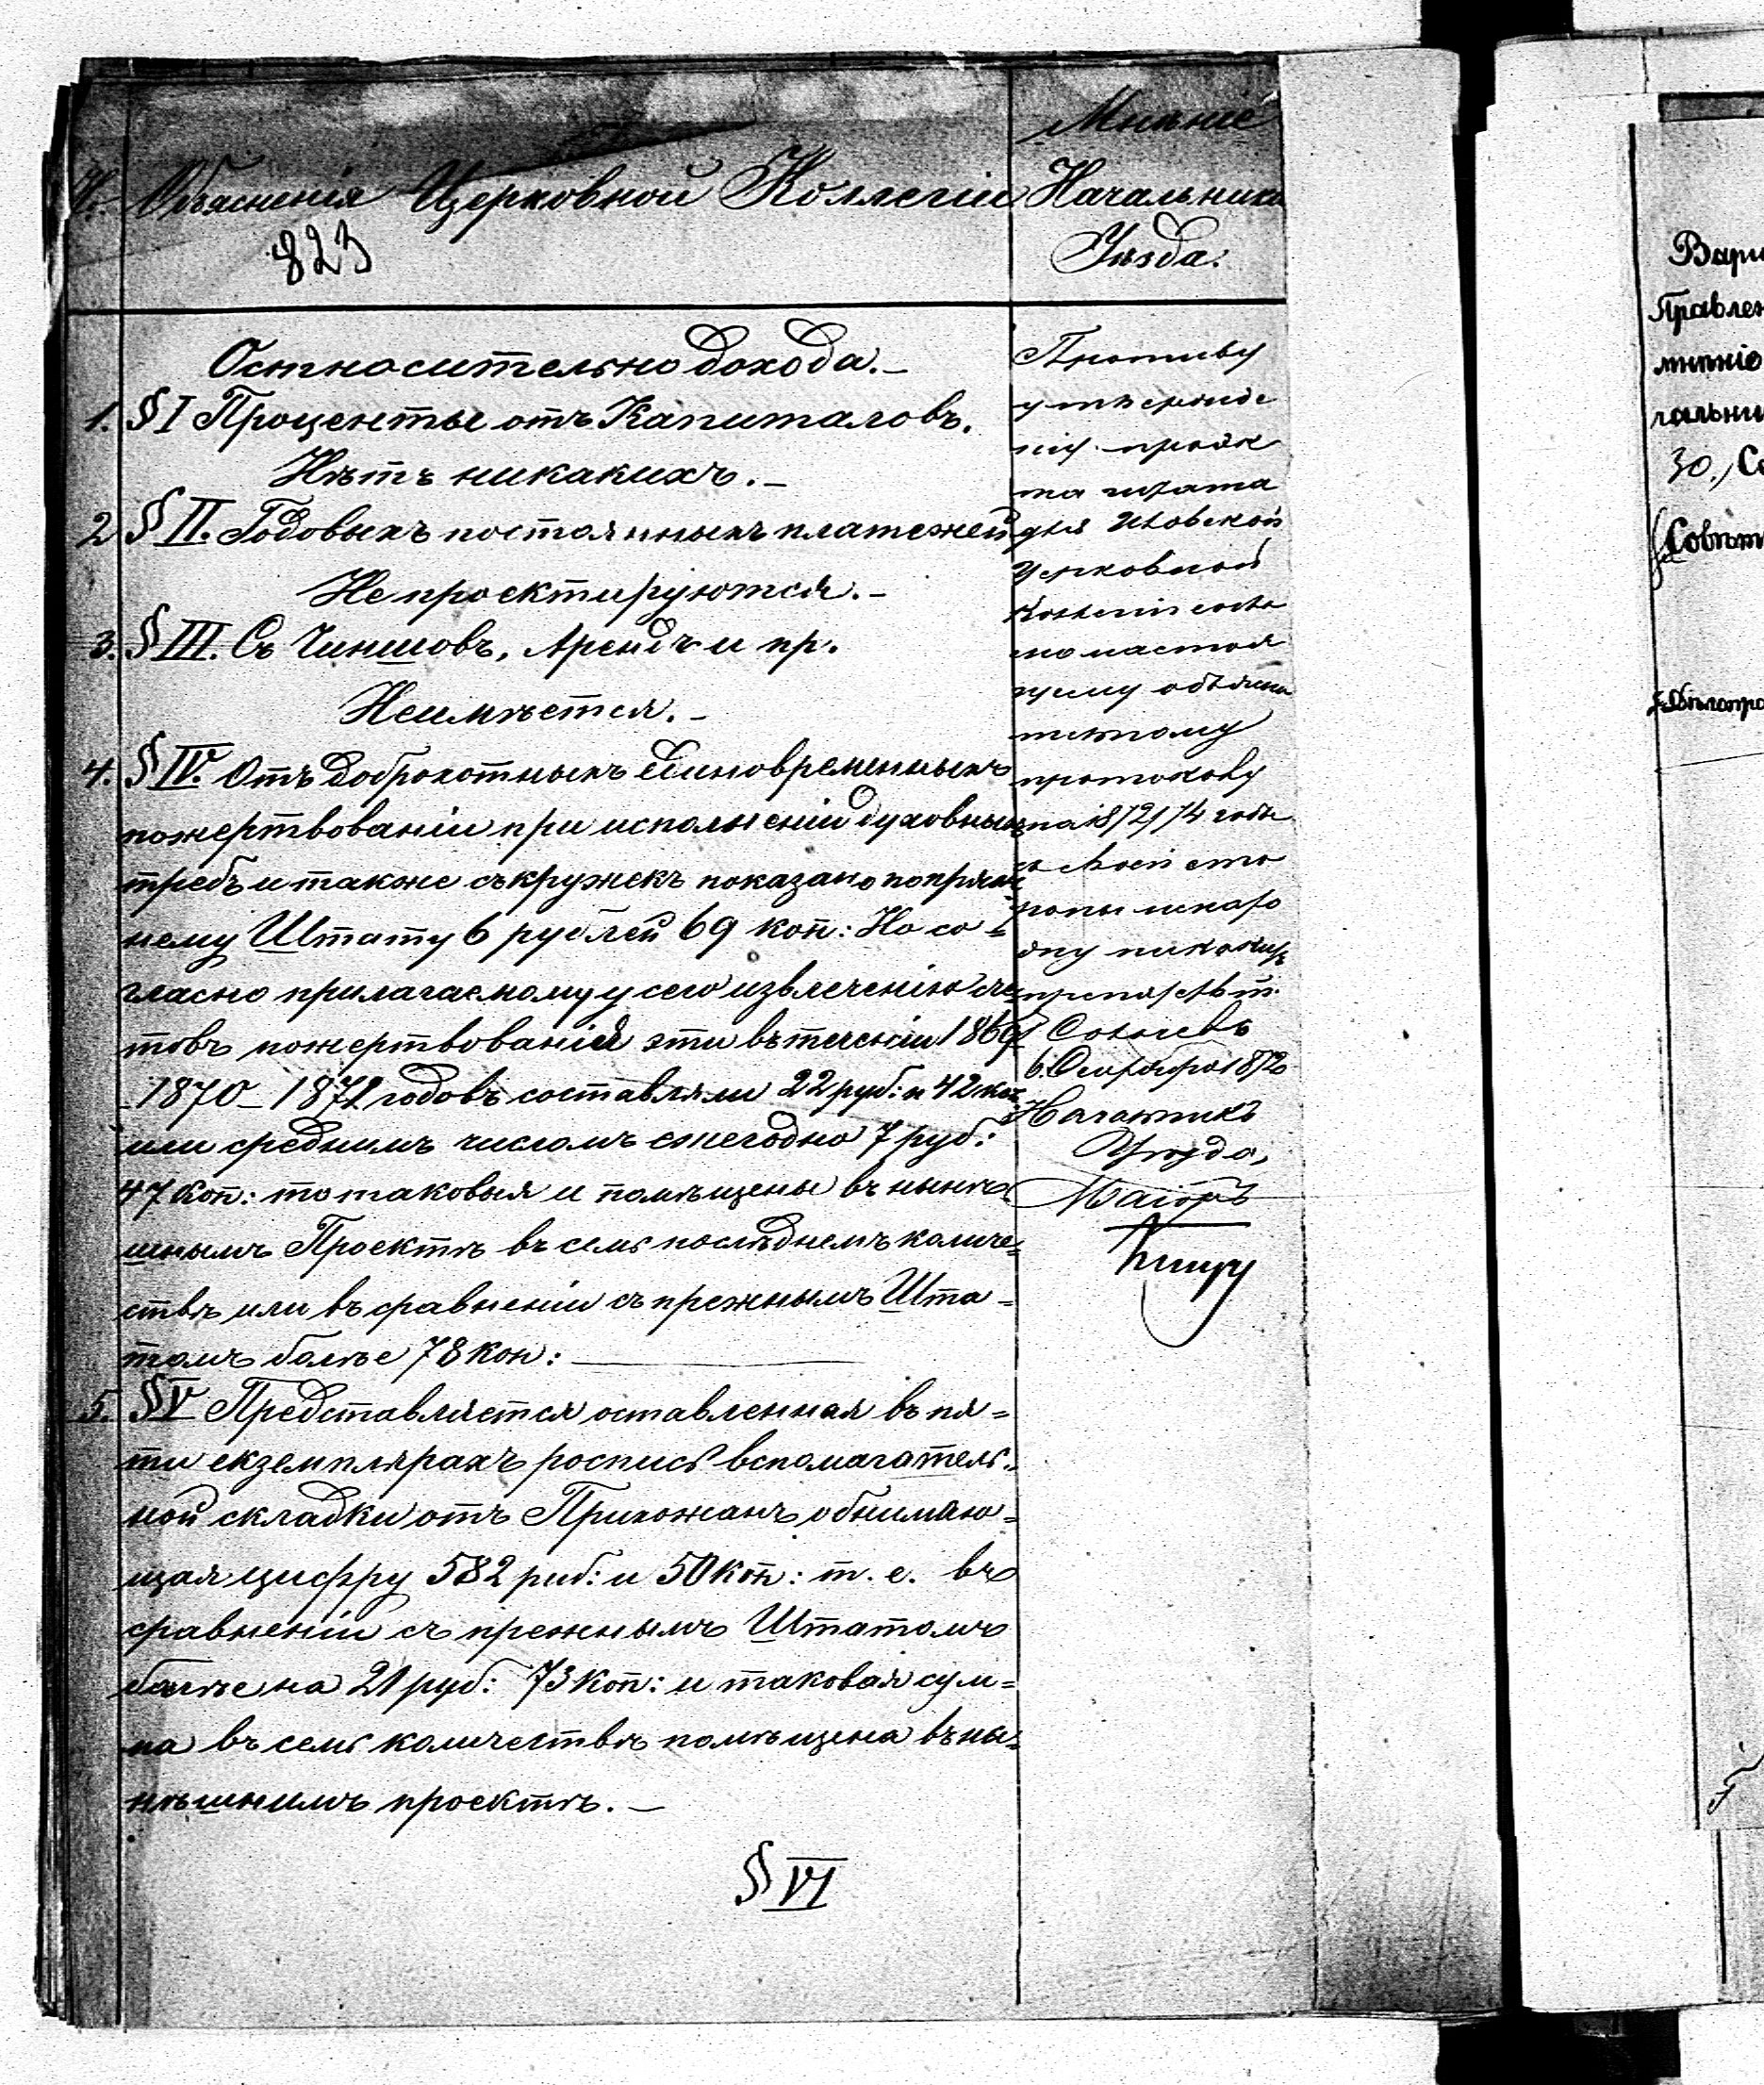 № Объясненія Церковной Коллегіи
823
Мнѣніе
Начальника
Уѣзда.
Остносительно дохода.–
1. § I Проценты отъ Капиталовъ.
Нѣтъ никакихъ.–
2 § II. Годовыхъ постоянныхъ платежей
Не проектируются.–
3. § III. Съ Чиншовъ, Арендъ и пр.
Неимѣется.–
4. § IV. Отъ доброхотныхъ единовременныхъ
пожертвованіи при исполненіи духовныхъ
требъ и также съ кружекъ показано по преж
нему Штату 6 рублей 69 коп: Но со=
гласно прилагаемому у сего извлеченію сче
товъ пожертвованія эти въ теченіи 1869
–1870–1871 годовъ составляли 22 руб: и 42 коп
или среднимъ числомъ ежегодно 7 руб:
47 коп: то таковыя и помѣщены въ нынѣ
шнымъ Проектѣ въ семъ послѣднемъ количе=
ствѣ или въ сравненіи съ прежнымъ Шта=
томъ болѣе 78 коп:
5. § V Представляется оставленная въ пя=
ти екземплярахъ роспись вспомагатель=
ной складки отъ Прихожанъ обнимаю=
щая цифру 582 руб: и 50 коп: т. е. въ
сравненіи съ прежнымъ Штатомъ
болѣе на 21 руб: 73 коп: и таковая сум=
ма въ семъ количествѣ помѣщена въ ны=
нѣшнимъ проектѣ.–
§ VI
Противу
утвержде
нію проэк
та штата
для
Церковной
Коллегіи
по настоя
щему объясни
тельному
протоколу
на 1872/74 годы
съ моей сто
роны
никакихъ
препятств.
6. 1872
Начальникъ
Уѣзда,
Маіоръ
Вари
Правлен
мнѣніе
чальни
30., Се
Совѣт